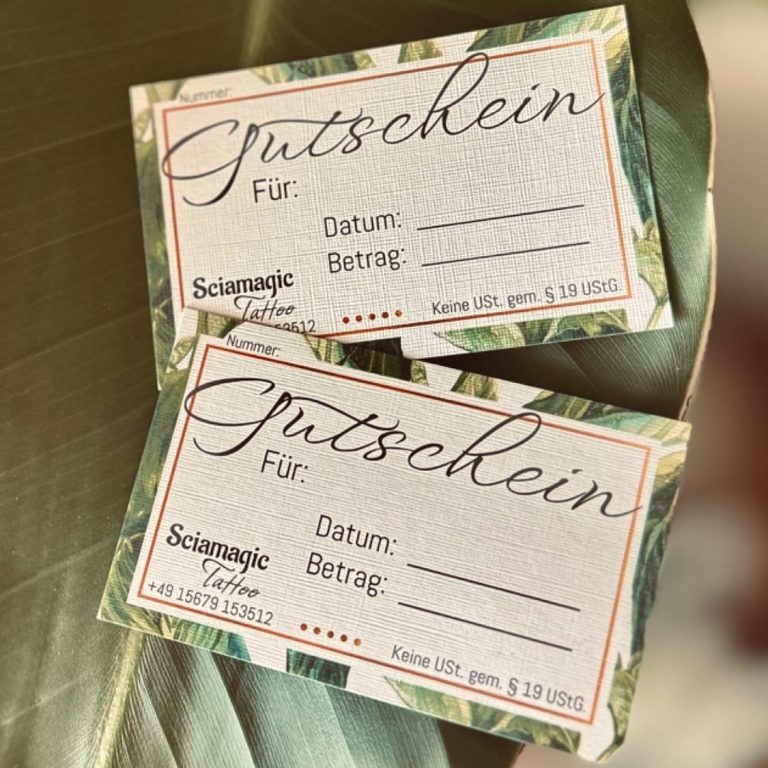 Nummer:
Gutschein
Für:
Datum:
Betrag:
Sciamagic
Tattoo
53512
Keine USt. gem. § 19 UStG.
Nummer:
Gutschein
Für:
Datum:
Betrag:
Sciamagic
Tattoo
+49 15679 153512
Keine USt. gem. § 19 UStG.